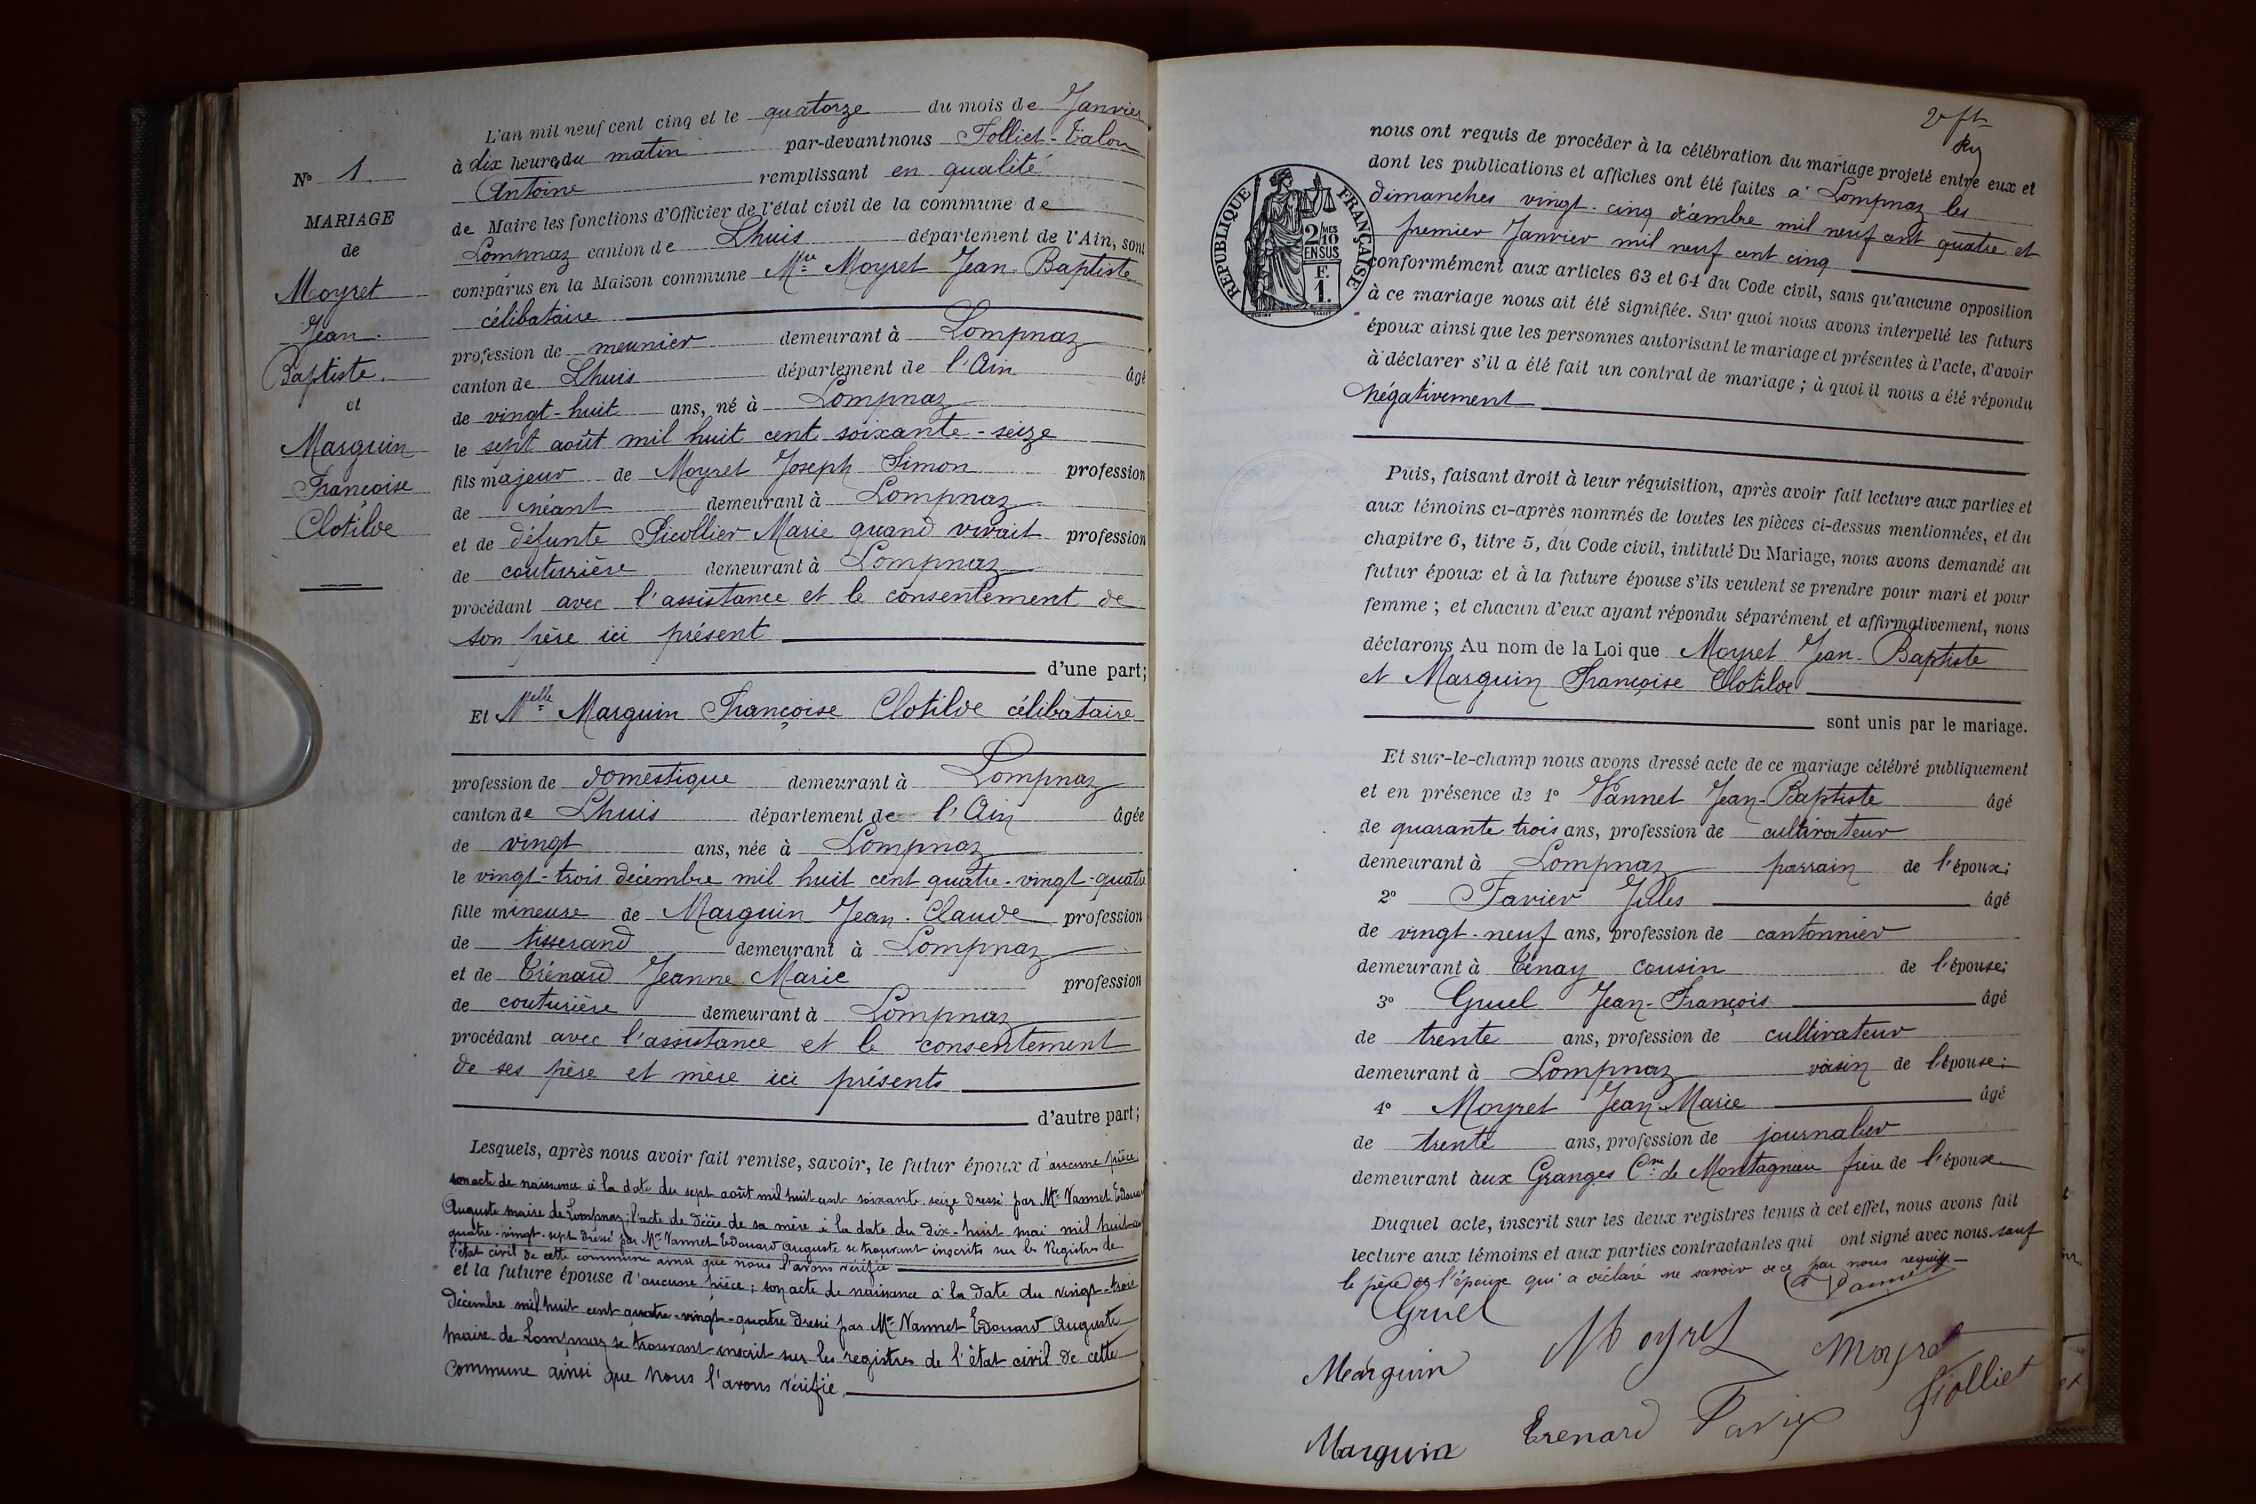 N° 1
MARIAGE
de
Moyret
Jean-
Baptiste.
et
Marguin
Françoise
Clotilde
L'an mil neuf cent cinq et le quatorze du mois de Janvier
à dix heures du matin par-devant nous Folliet-Talon
Antoine remplissant en qualité
de Maire les fonctions d'Officier de l'état civil de la commune de
Lompnaz canton de Lhuis département de l'Ain, sont
comparus en la Maison commune Moyret Jean-Baptiste
célibataire
profession de meunier demeurant à Lompnaz
canton de Lhuis département de l'Ain âgé
de vingt-huit ans, né à Lompnaz
le sept août mil huit cent soixante-seize
fils majeur de Moyret Joseph Simon profession
de néant demeurant à Lompnaz
et de défunte Picollier Marie quand vivait profession
de couturière demeurant à Lompnaz
procédant avec l'assistance et le consentement de
son père ici présent
d'une part;
Et Melle Marguin Françoise Clotilde célibataire
profession de domestique demeurant à Lompnaz
canton de Lhuis département de l'Ain âgée
de vingt ans, née à Lompnaz
le vingt-trois décembre mil huit cent quatre-vingt-quatre
fille mineure de Marguin Jean-Claude profession
de tisserand demeurant à Lompnaz
et de Trénard Jeanne Marie profession
de couturière demeurant à Lompnaz
procédant avec l'assistance et le consentement
de ses père et mère ici présents
d'autre part;
Lesquels, après nous avoir fait remise, savoir, le futur époux d'aucune pièce
son acte de naissance à la date du sept août mil huit cent soixante-seize dressé par Mr Vannet Edouard
Auguste maire de Lompnaz; l'acte de décès de sa mère à la date du dix-huit mai mil huit cent
quatre-vingt-sept dressé par Mr Vannet Edouard Auguste se trouvant inscrits sur les Registres de
l'état civil de cette commune ainsi que nous l'avons vérifié
et la future épouse d'aucune pièce; son acte de naissance à la date du vingt-trois
décembre mil huit cent quatre-vingt-quatre dressé par Mr Vannet Edouard Auguste
maire de Lompnaz se trouvant inscrit sur les registres de l'état civil de cette
commune ainsi que nous l'avons vérifié.
2e ft
RÉPUBLIQUE FRANÇAISE
2/10MES
EN SUS
F.
1.
nous ont requis de procéder à la célébration du mariage projeté entre eux et
dont les publications et affiches ont été faites à Lompnaz les
dimanches vingt-cinq décembre mil neuf cent quatre et
premier Janvier mil neuf cent cinq
conformément aux articles 63 et 64 du Code civil, sans qu'aucune opposition
à ce mariage nous ait été signifiée. Sur quoi nous avons interpellé les futurs
époux ainsi que les personnes autorisant le mariage et présentes à l'acte, d'avoir
à déclarer s'il a été fait un contrat de mariage; à quoi il nous a été répondu
négativement
Puis, faisant droit à leur réquisition, après avoir fait lecture aux parties et
aux témoins ci-après nommés de toutes les pièces ci-dessus mentionnées, et du
chapitre 6, titre 5, du Code civil, intitulé Du Mariage, nous avons demandé au
futur époux et à la future épouse s'ils veulent se prendre pour mari et pour
femme; et chacun d'eux ayant répondu séparément et affirmativement, nous
déclarons Au nom de la Loi que Moyret Jean-Baptiste
et Marguin Françoise Clotilde
sont unis par le mariage.
Et sur-le-champ nous avons dressé acte de ce mariage célébré publiquement
et en présence de 1° Vannet Jean-Baptiste âgé
de quarante trois ans, profession de cultivateur
demeurant à Lompnaz parrain de l'époux;
2° Favier Jules âgé
de vingt-neuf ans, profession de cantonnier
demeurant à Tenay cousin de l'épouse;
3° Gruel Jean-François âgé
de trente ans, profession de cultivateur
demeurant à Lompnaz voisin de l'épouse;
4° Moyret Jean-Marie âgé
de trente ans, profession de journalier
demeurant aux Granges Cne de Montagnieu frère de l'époux
Duquel acte, inscrit sur les deux registres tenus à cet effet, nous avons fait
lecture aux témoins et aux parties contractantes qui ont signé avec nous sauf
le père de l'époux qui a déclaré ne savoir de ce par nous requis
Gruel Vannet
Marguin Moyret Moyret
Marguin Trenard Favier Folliet